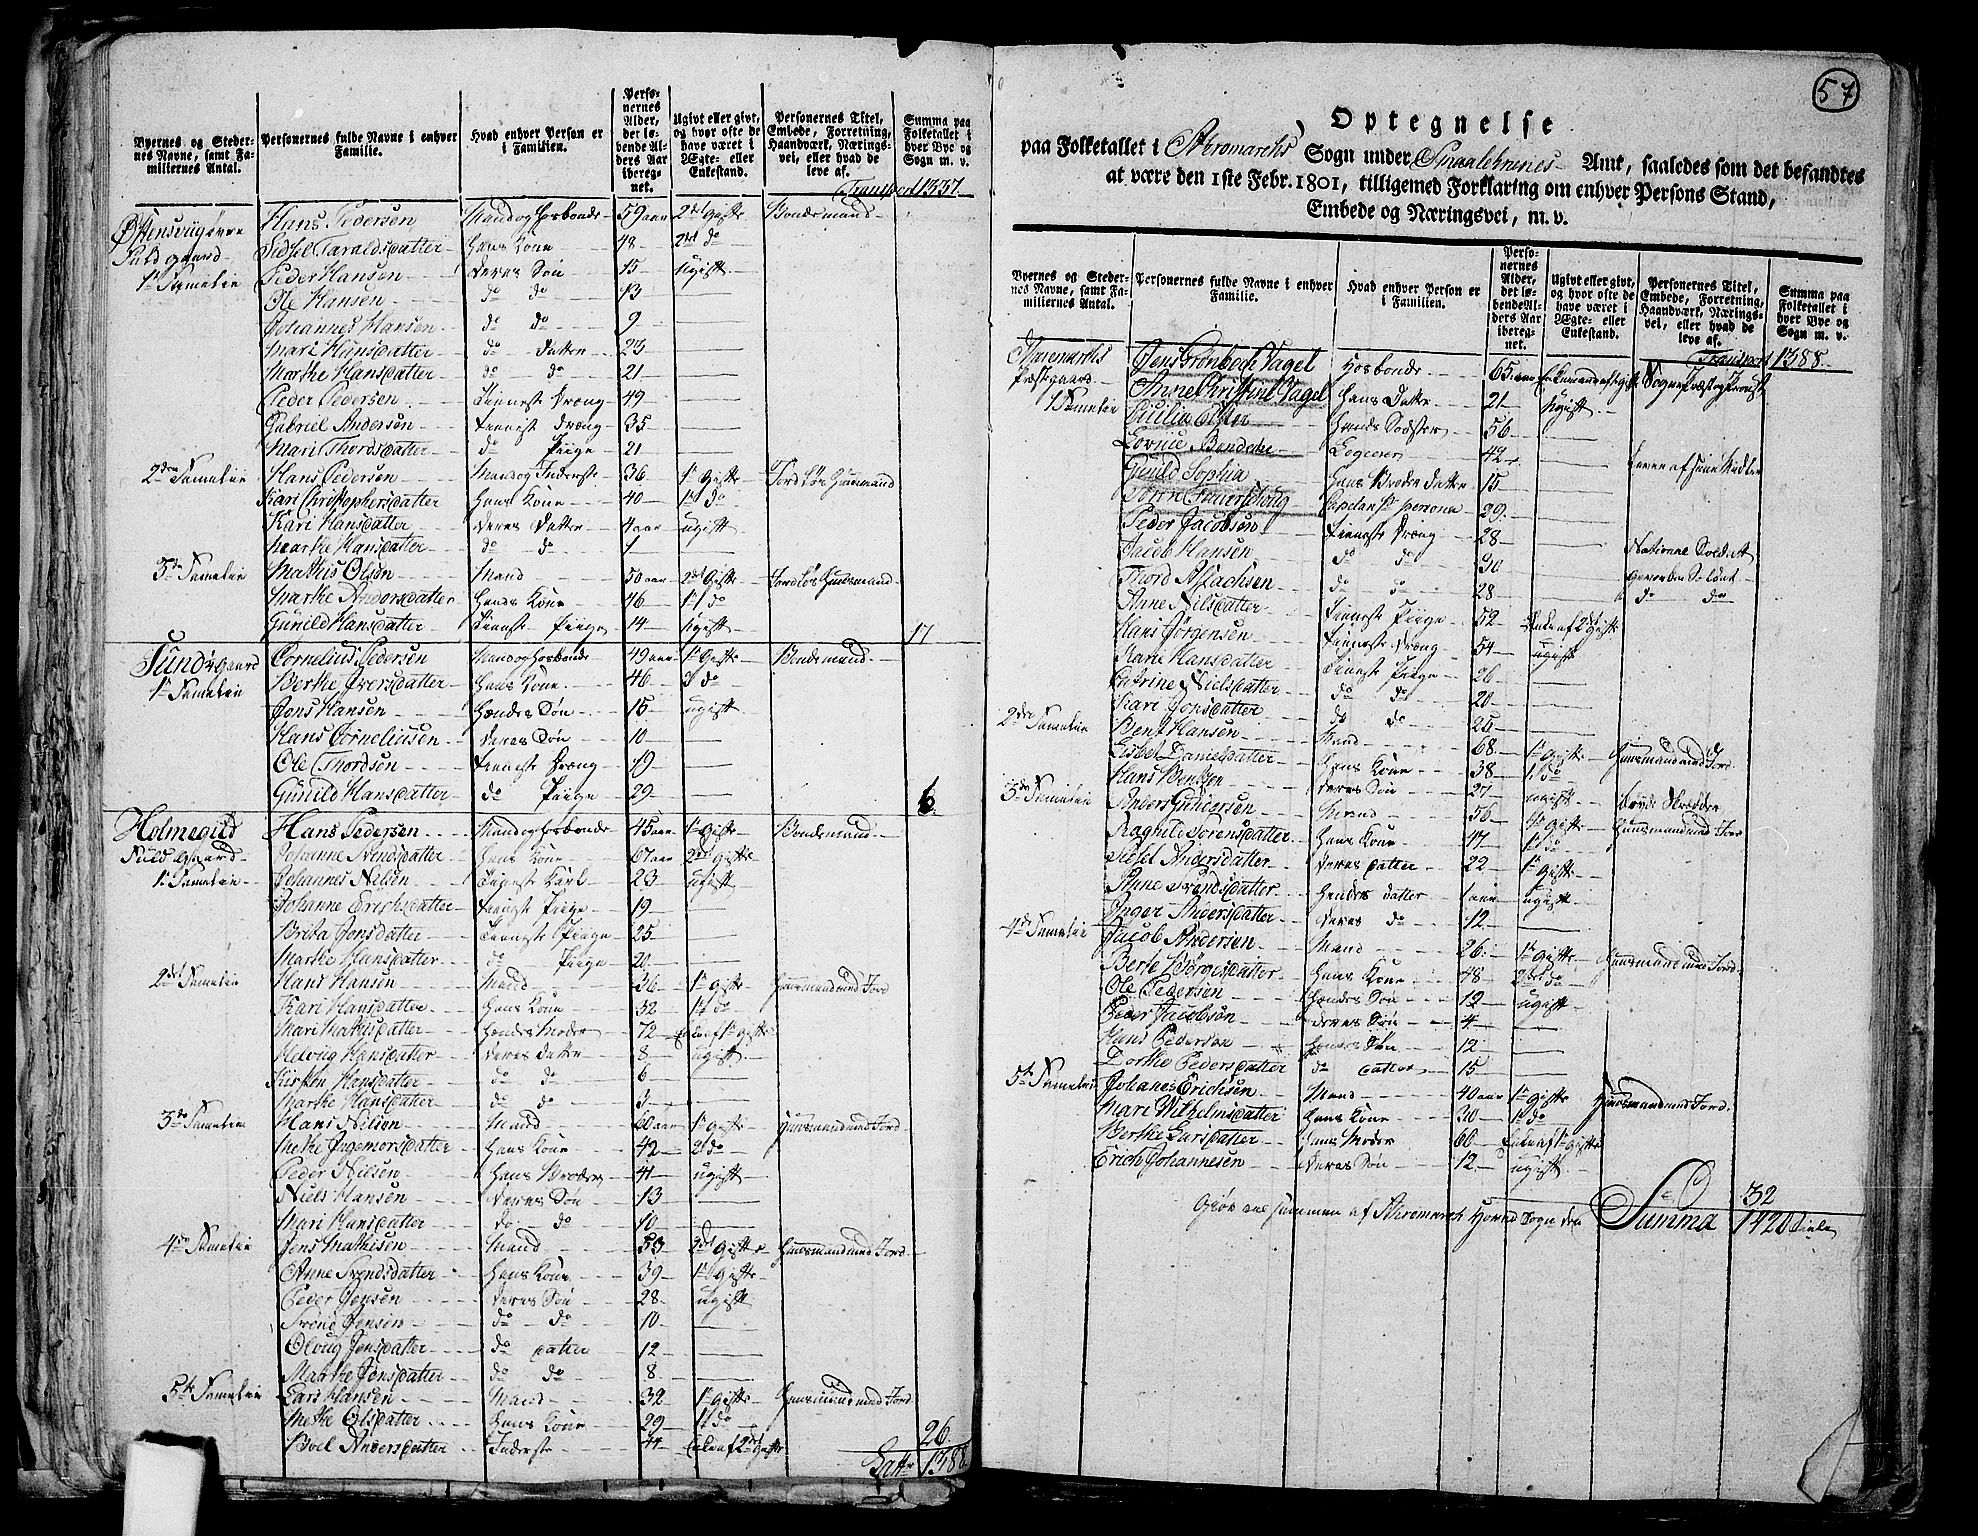 Byernes og Stedernes Navne, samt Familiernes Antal.
Personernes fulde Navne i enhver Familie.
Hvad enhver Person er i Familien.
Personernes Alder, det løbende Alders Aar iberegnet.
Ugivt eller givt, og hvor ofte de have været i Ægte- eller Enkestand.
Personernes Titel, Embede, Forretning, Haandværk, Næringsvei, eller hvad de leve af.
Summa paa Folketallet i hver Bye og Sogn m. v.
Transport 1337
Hans Pedersen Mand og Hosbonde 59 aar 2det gifte Bondemand
Fuldgaard Sidsel Taraldsdatter Hans Kone 48 2det do
1te Familie Peder Hansen deres Søn 15 ugift
Ole Hansen do do 13
Johannes Hansen do do 9
Mari Hansdatter do datter 23
Marthe Hansdatter do do 21
Peder Pedersen Tieneste Dræng 49
Gabriel Andersen Tieneste Dræng 35
Mari Thordsdatter do Piige 21
2den Familie Hans Pedersen Mand og Inderste 36 1te Gifte Jordløs Huusmand
Kari Christophersdatter Hans Kone 40 1te do
Kari Hansdatter deres datter 4 aar ugift
Marthe Hansdatter do do 1
3de Familie Mathis Olsøn Mand 50 aar 2det Gifte Jordløs Huusmand
Marthe Andersdatter Hans Kone 46 1te do
Gunild Hansdatter Tieneste Piige 14 ugift
17
Sundø gaard Cornelius Pedersen Mand og Hosbonde 49 aar 1te Gifte Bondemand
1te Familie Berthe Iversdatter Hans Kone 46 2 do
Jens Hansen Hendes Søn 15 ugift
Hans Corneliusen deres Søn 10
Ole Thordsen Tieneste Dræng 19
Gunild Hansdatter do Piige 29
6
Holmegild Hans Pedersen Mand og Hosbonde 45 aar 1te Gifte Bondemand
Fuld Gaard Johanne Svendsdatter Hans Kone 67 aar 2det Gifte
1te Familie Johannes Nilsen Tieneste Karl 23 ugift
Johanne Erichsdatter Tieneste Piige 19
Brita Jonsdatter Tieneste Piige 25
Marthe Hansdatter do Piige 20
2det Familie Hans Hansen Mand 36 1te Gifte Huusmand med Jord
Kari Hansdatter Hans Kone 32 1te do
Mari Mathisdatter Hendes Moder 72 Enke af 1te Gifte
Helvig Hansdatter deres datter 8 ugift
Kirsten Hansdatter do do 6
Marthe Hansdatter do do 3
3de Familie Hans Nilsen Mand 60 aar 1te Gifte Huusmand med Jord
Methe Ingemorsdatter Hans Kone 42 2 do
Peder Nilsen Hans Broder 41 ugift
Niels Hansen deres Søn 13
Mari Hansdatter do do 10
4de Familie Jens Mathisen Mand 53 2det Gifte Huusmand med Jord
Anne Svendsdatter Hans Kone 39 1te Gifte
Peder Jensen deres Søn 28 ugift
Svend Jensen do do 10
Oloug Jensdatter do datter 12
Marthe Jensdatter do do 8
5te Familie Lars Hansen Mand 32 1te Gifte Huusmand med Jord
Methe Olsdatter Hans Kone 29 1te do
Boel Andersdatter Inderste 44 Enke af 2det Gifte
26
Latr 1388
57
Optegnelse
paa Folketallet i Aremarchs Sogn under Smaalehnenes Amt, saaledes som det befandtes
at være den 1ste Febr. 1801, tilligemed Forklaring om enhver Persons Stand,
Embede og Næringsvei, m. v.
Byernes og Stedernes Navne, samt Familiernes Antal.
Personernes fulde Navne i enhver Familie.
Hvad enhver Person er i Familien.
Personernes Alder, det løbende Alders Aar iberegnet.
Ugivt eller givt, og hvor ofte de have været i Ægte- eller Enkestand.
Personernes Titel, Embede, Forretning, Haandværk, Næringsvei, eller hvad de leve af.
Summa paa Folketallet i hver Bye og Sogn m. v.
Transport 1388
Aremarchs Jens Grønbech Vagel Hosbonde 65 aar Sogne Præst og Provst
Præstgaard Anne Christine Vagel Hans Datter 21 ugift
1 Familie Hands Sødster 56
Bendeke Logerer 42
Gunild Sophia Hans Broder datter 15
Capelan pr persona 29
Peder Jacobsen Tieneste Dræng 28
Jacob Hansen do do 30 National Soldat
Thord Aslachsen do do 28 do do
Anne Nilsdatter Tieneste Piige 52 Enke af 2det Gifte
Hans Jørgensen Tieneste Dræng 54 ugift
Kari Hansdatter Tieneste Piige 26
Catrine Nielsdatter do do 20
Kari Jonsdatter do do 25
2den Familie Bent Hansen Mand 68 1te Gifte Huusmand med Jord
Lisbet Danielsdatter Hans Kone 38 1te do
Hans Bentsen deres Søn 27 ugift Bøyde Skrædder
3de Familie Anders Gundersen Mand 56 1te Gifte Huusmand med Jord
Ragnild Sørensdatter Hans Kone 47 1te do
Sidsel Andersdatter deres datter 22 1te Gifte
Anne Svendsdatter Hendes datter 1 aar ugift
Inger Andersdatter deres do 12
4de Familie Jacob Andersen Mand 26 1te Gifte Huusmand med Jord
Berte Børgesdatter Hans Kone 48 2det do
Ole Pedersen Hendes Søn 12 ugift
Peder Jacobsen deres Søn 4
Hans Pedersen Hendes Søn 12
Dorthe Pedersdatter do datter 15
5te Familie Johanes Erichsen Mand 40 aar 1te Gifte Huusmand med Jord
Mari Wilhelmsdatter Hans Kone 30 1te do
Berthe Larsdatter Hans Moder 60 Enke af 1te Gifte
Erich Johannesen deres Søn 12 ugift
32
Giør ald summen af Aremarch Hoved Sogn den Summa 1420 Siele